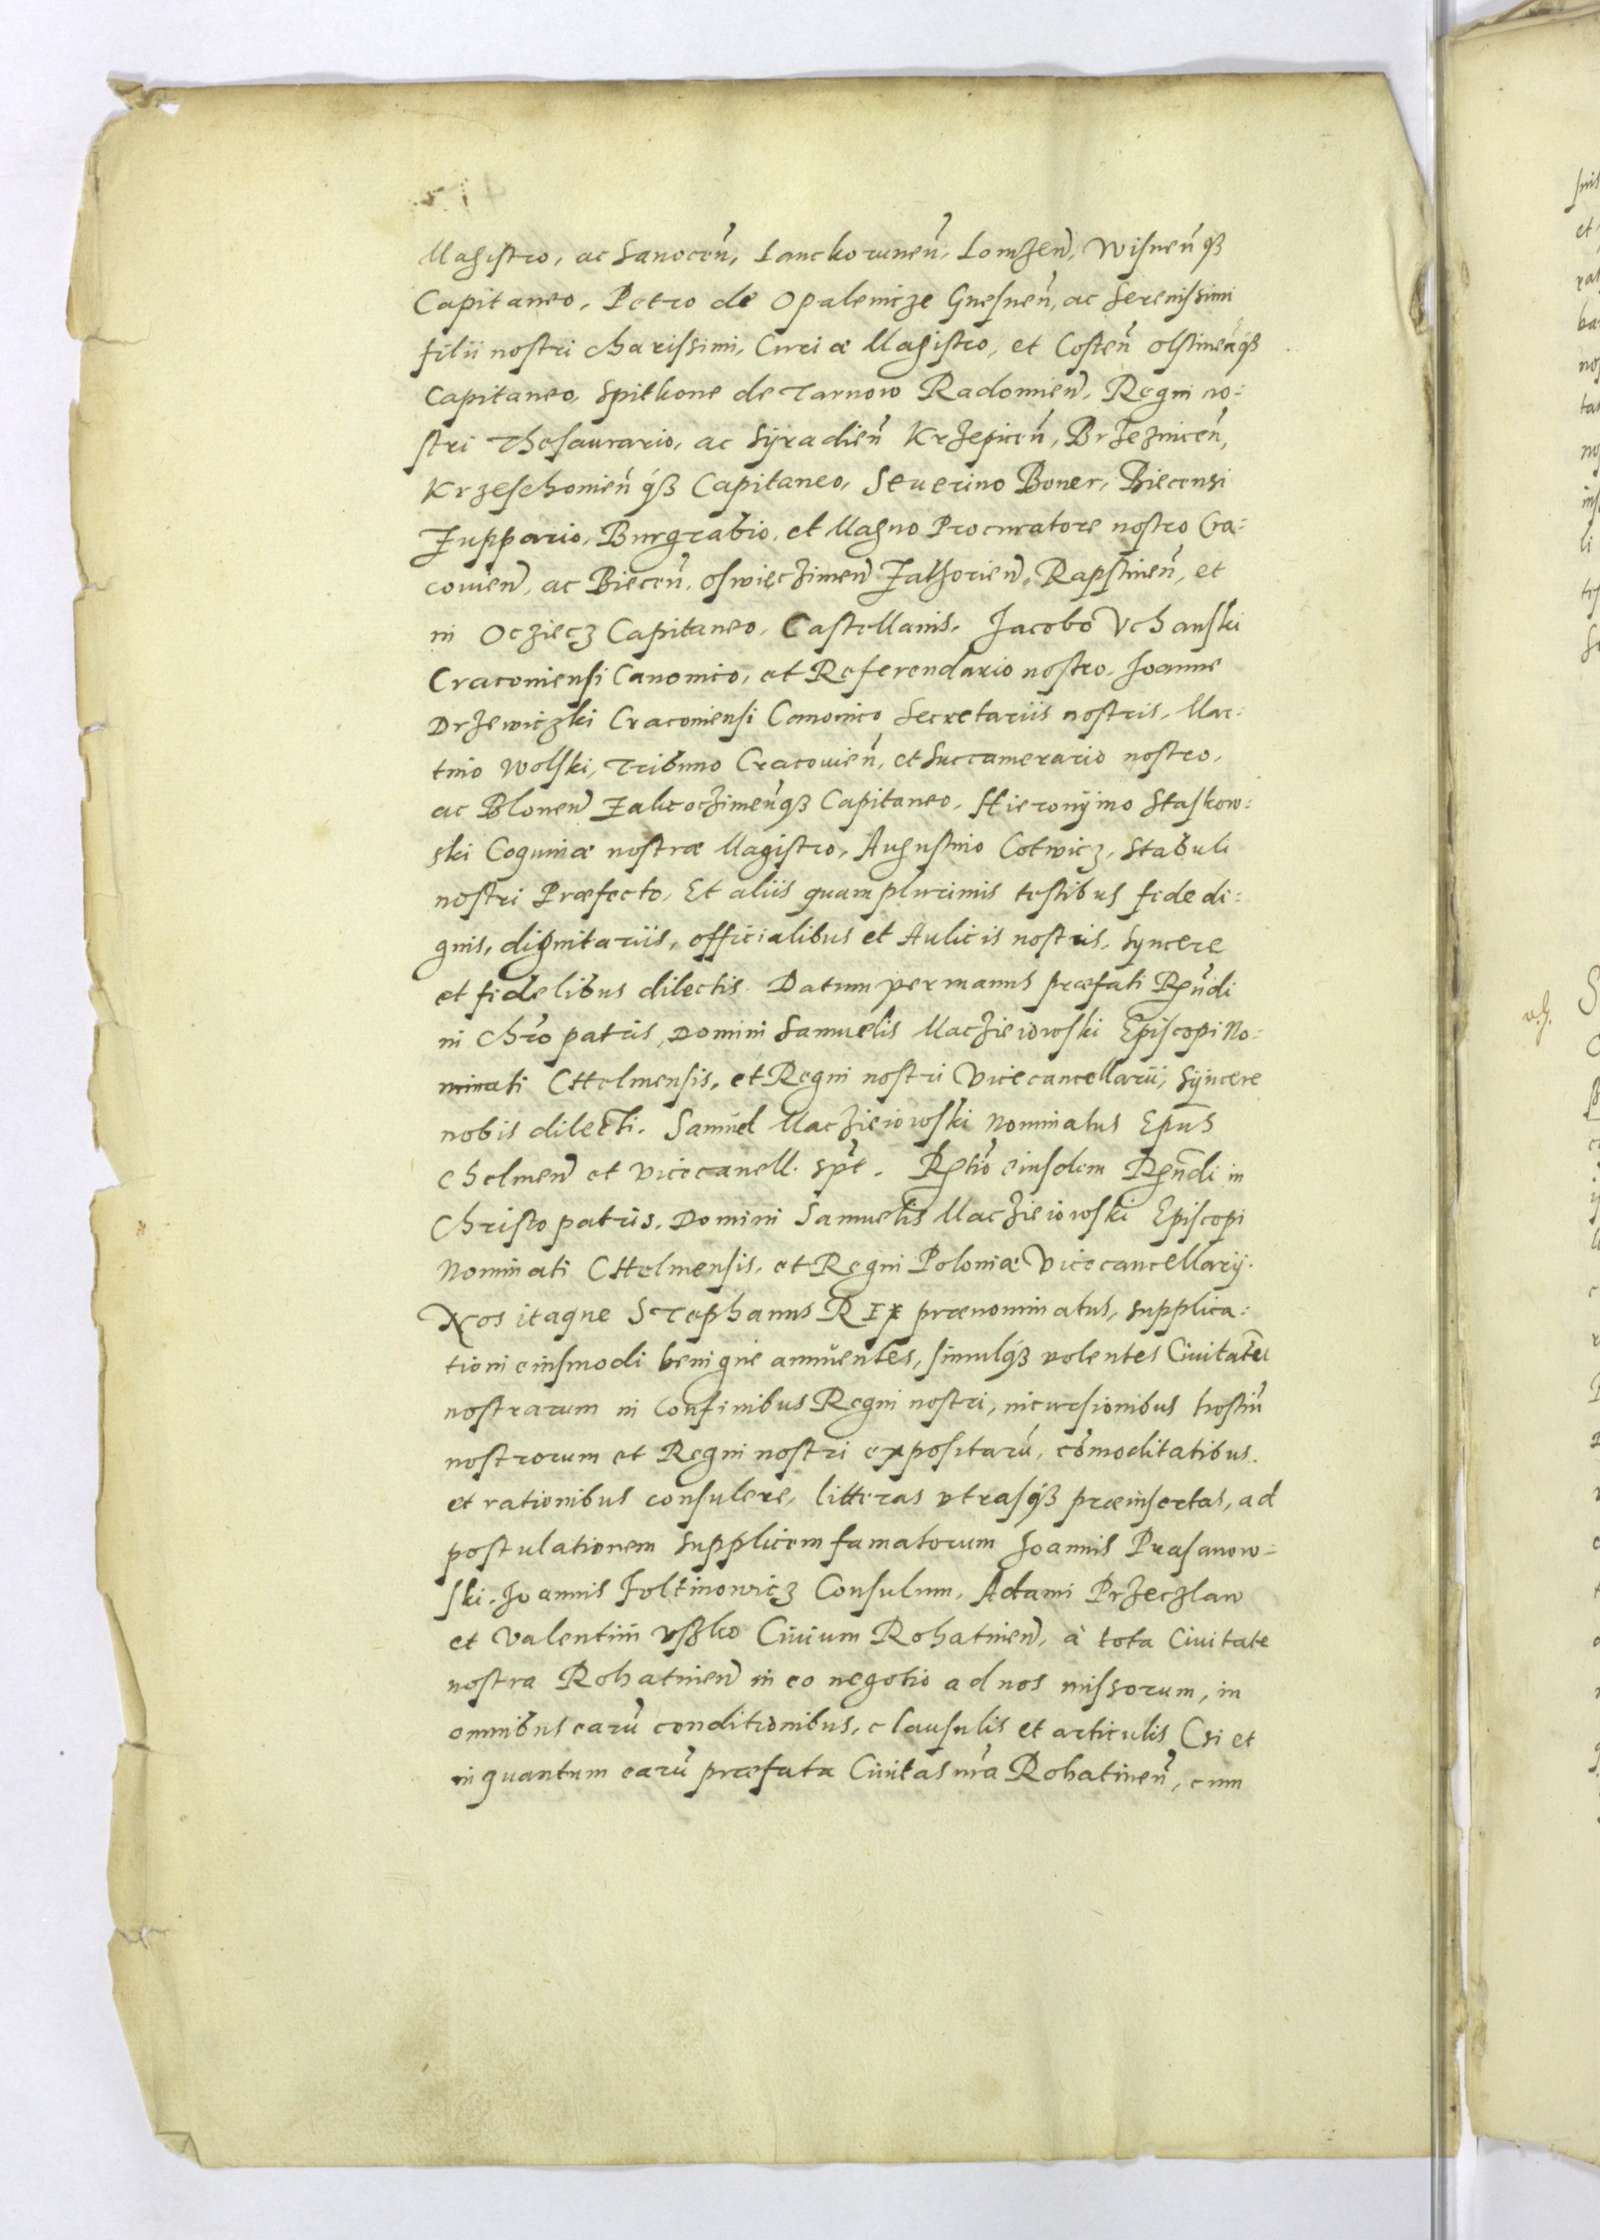 Magistro, ac Sanocen̄, Lanckorunen̄, Lomzen̄, Wisnen̄qȝ
Capitaneo, Petro de Opalenicze Gnesnen̄, ac Serenissimi
filii nostri charissimi, Curiæ Magistro, et Costen̄ Olstinen̄qȝ
Capitaneo, Spitkone de Tarnow Radomien̄, Regni no:
stri Thesaurario, ac Syradien̄ Krzepicen̄, Brzeznicen̄,
Krzeschonien̄qȝ Capitaneo, Seuerino Boner, Biecensi
Zuppario, Burgrabio, et Magno Procuratore nostro Cra:
couien̄, ac Biecen̄, Oswieczimen̄ Zathorien̄, Rapstinen̄, et
in Ocziecz Capitaneo, Castellanis, Jacobo Vchanski
Cracouiensi Canonico, et Referendario nostro, Joanne
Drzewiczki Cracouiensi Canonico Secretariis nostris, Mar:
tino Wolski, Tribuno Cracouien̄, et Succamerario nostro,
ac Blonen̄ Capitaneo, Hieronymo Staskow:
ski Coquinæ nostræ Magistro, Augustino Cotwicz, Stabuli
nostri Præfecto, Et aliis quamplurimis testibus fide di:
gnis, dignitariis, officialibus et Aulicis nostris, syncere
et fidelibus dilectis. Datum per manus præfati Rn̄di
in Chr̄o patris, Domini Samuelis Maczieiowski Episcopi No:
minati CHelmensis, et Regni nostri Vicecancellarii, syncere
nobis dilecti. Samuel Maczieiowski Nominatus Ep̄us
Chelmen̄ et vicecanell. sp̄t. Rƚtio eiusdem Rn̄di in
Christo patris, Domini Samuelis Maczieiowski Episcopi
Nominati CHelmensis, et Regni Poloniæ Vicecancellarij.
Nos itaque STephanus REX prænominatus, supplica:
tioni eiusmodi benigne annuentes, simulqȝ volentes Ciuitatū
nostrarum in Confinibus Regni nostri, incursionibus hostiū
nostrorum et Regni nostri expositarū, cōmoditatibus
et rationibus consulere, litteras vtrasqȝ præinsertas, ad
postulationem supplicem famatorum Joannis Prasanow:
ski, Joannis Foltinowicz Consulum, Adami Przeczlaw
et Valentini Vszko Ciuium Rohatinen̄, à tota Ciuitate
nostra Rohatinen̄ in eo negotio ad nos missorum, in
omnibus earū conditionibus, clausulis et articulis (si et
in quantum earū præfata Ciuitas n̄ra Rohatinen̄, cum